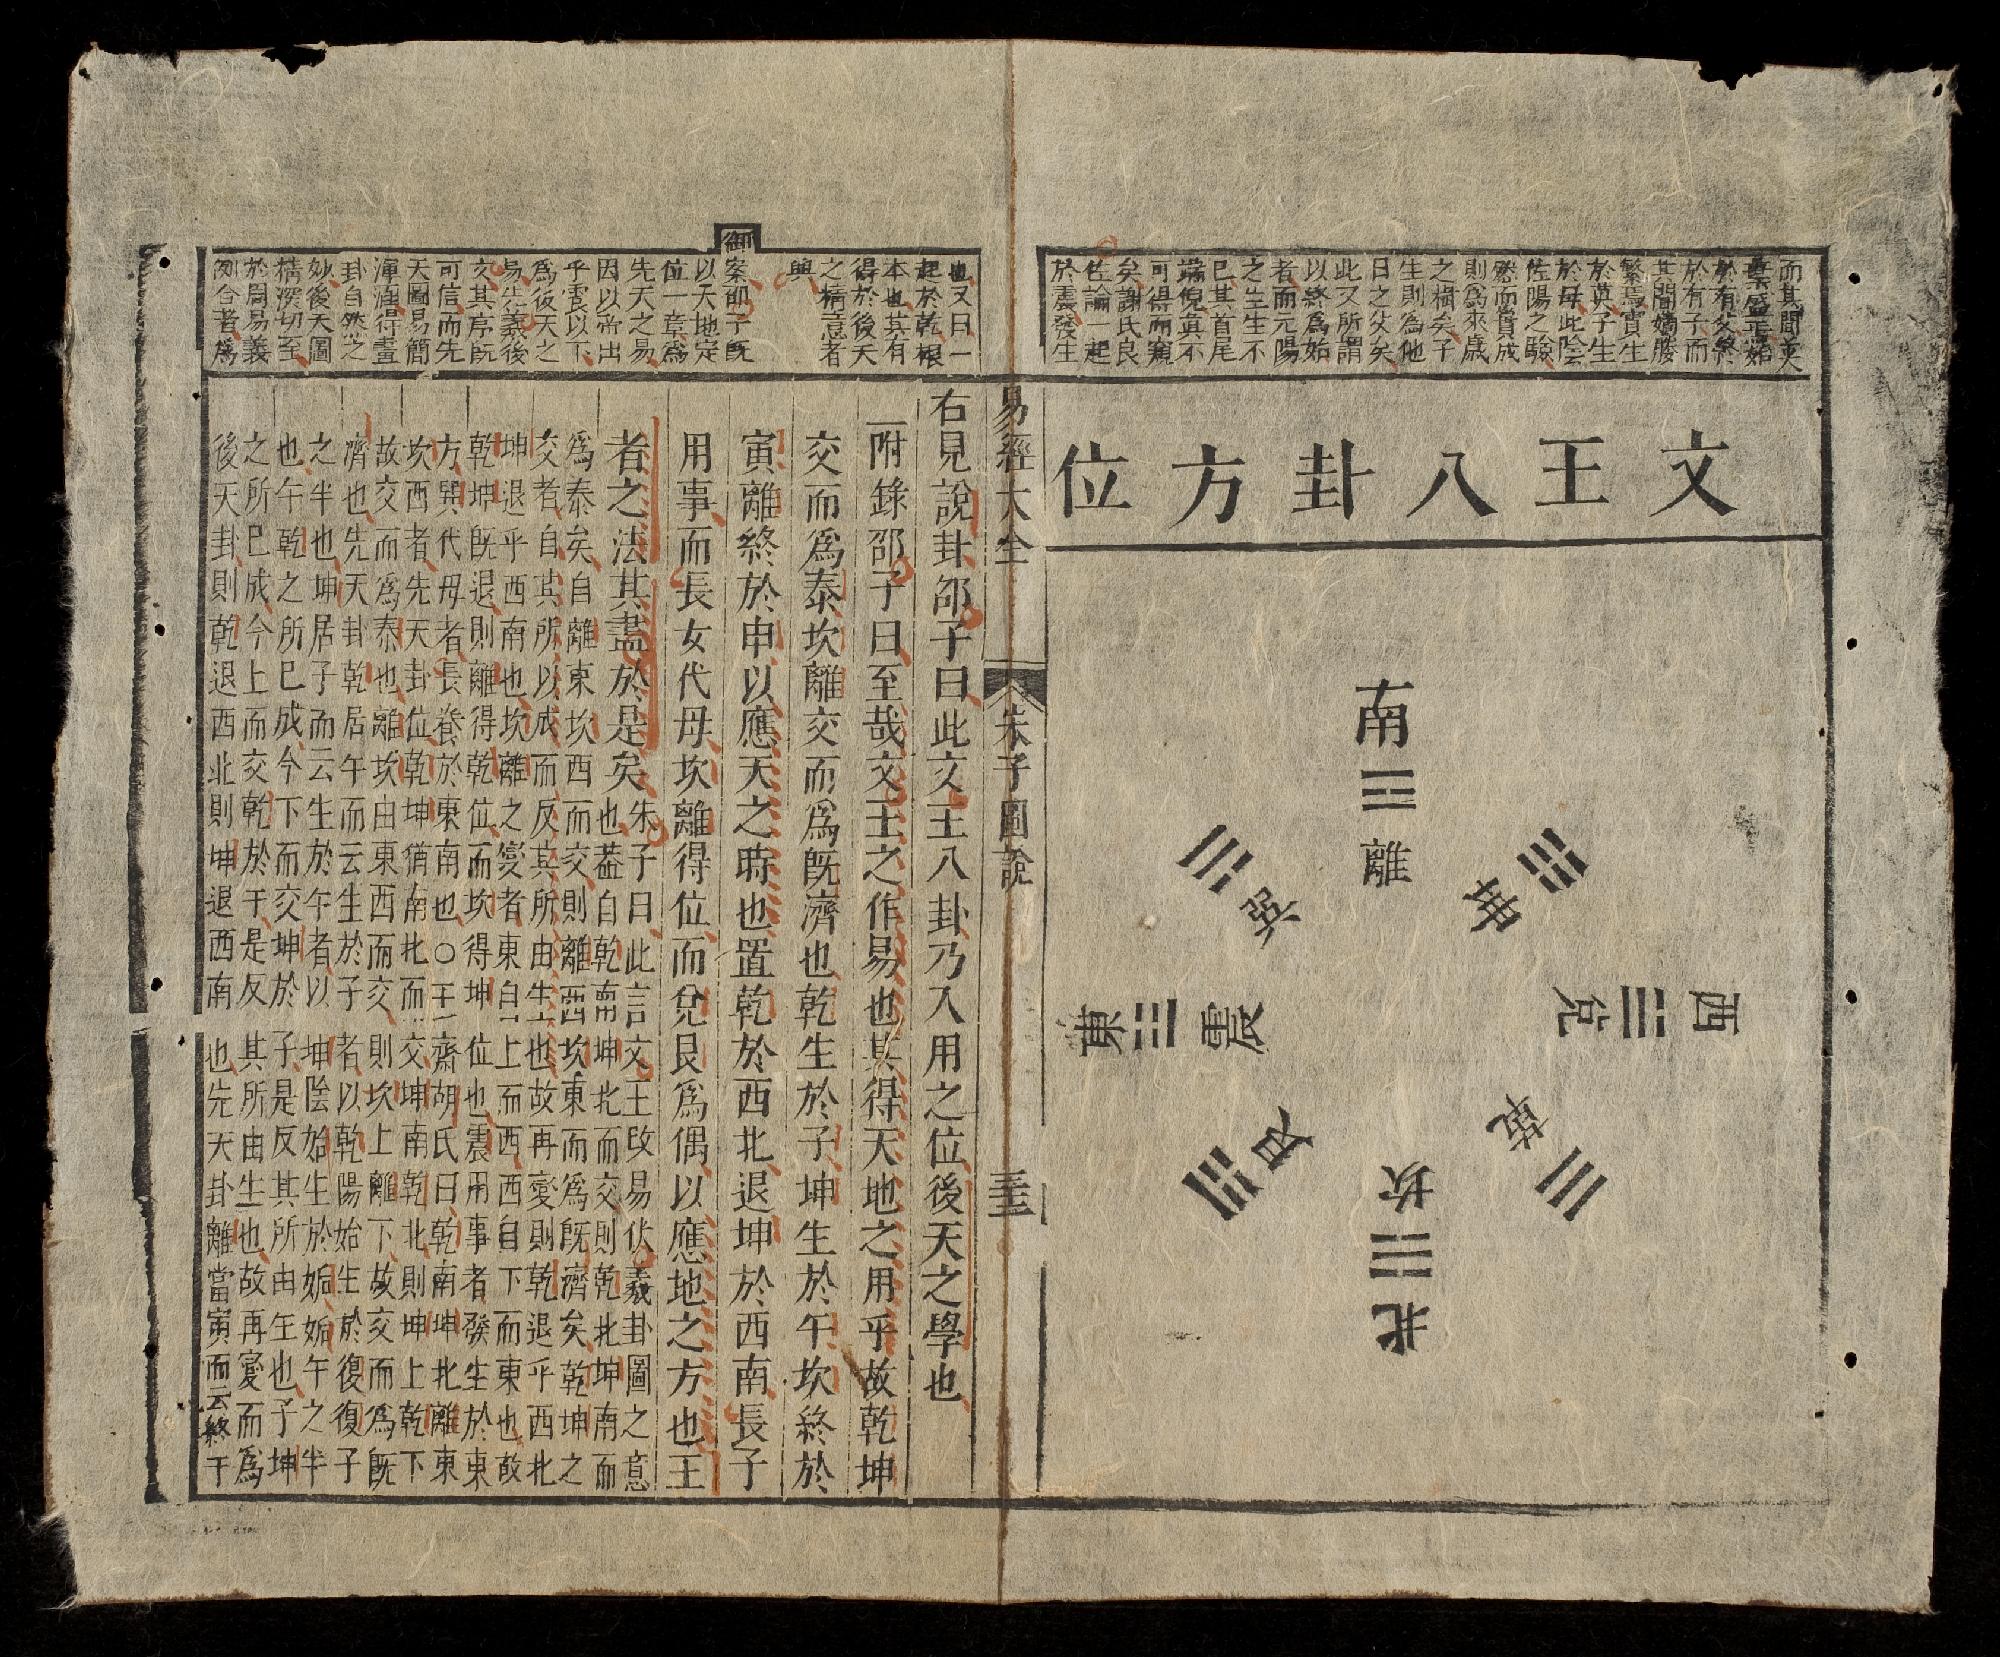 而其間英
於有父終
於有子而
其間嫡媵
繁焉實生
於英子生
於母此陰
佐陽之驗
然而實成
則爲來歲
之榾矣子
生則爲他
日之父矣
此又所謂
以終爲始
者而元陽
之生生不
已其首尾
端倪眞不
可得而窺
矣謝氏良
佐論一起
於震發生
文王八卦方位
南
離
坤
西
兌
乾
北
坎
艮
東
震
巽
易經大全
朱子圖說
三十三
也又曰一
起於乾根
本也其有
得於後天
之精意者
與
御
案邵子旣
以天地定
位一章爲
先天之易
因以帝出
乎震以下
爲後天之
易先羲後
文其序旣
可信而先
天圖易簡
渾涵得畫
卦自然之
妙後天圖
精深切至
於周易義
例合者爲
右見說卦邵子曰此文王八卦乃入用之位後天之學也
附錄邵子曰至哉文王之作易也其得天地之用乎故乾坤
交而爲泰坎離交而爲旣濟也乾生於子坤生於午坎終於
寅離終於申以應天之時也置乾於西北退坤於西南長子
用事而長女代母坎離得位而兌艮爲偶以應地之方也王
者之法其盡於是矣
朱子曰此言文王改易伏羲卦圖之意
也蓋自乾南坤北而交則乾北坤南而
爲泰矣自離東坎西而交則離西坎東而爲旣濟矣乾坤之
交者自其所以成而反其所由生也故再變則乾退乎西北
坤退乎西南也坎離之變者東自上而西西自下而東也故
乾坤旣退則離得乾位而坎得坤位也震用事者發生於東
方巽代母者長養於東南也○王齋胡氏曰乾南坤北離東
坎西者先天卦位乾坤猶南北而交坤南乾北則坤上乾下
故交而爲泰也離坎由東西而交則坎上離下故交而爲旣
濟也先天卦乾居午而云生於子者以乾陽始生於復復子
之半也坤居子而云生於午者以坤陰始生於姤姤午之半
也午乾之所已成今下而交坤於子是反其所由生也子坤
之所已成今上而交乾於午是反其所由生也故再變而爲
後天卦則乾退西北則坤退西南也先天卦離當寅而云終于